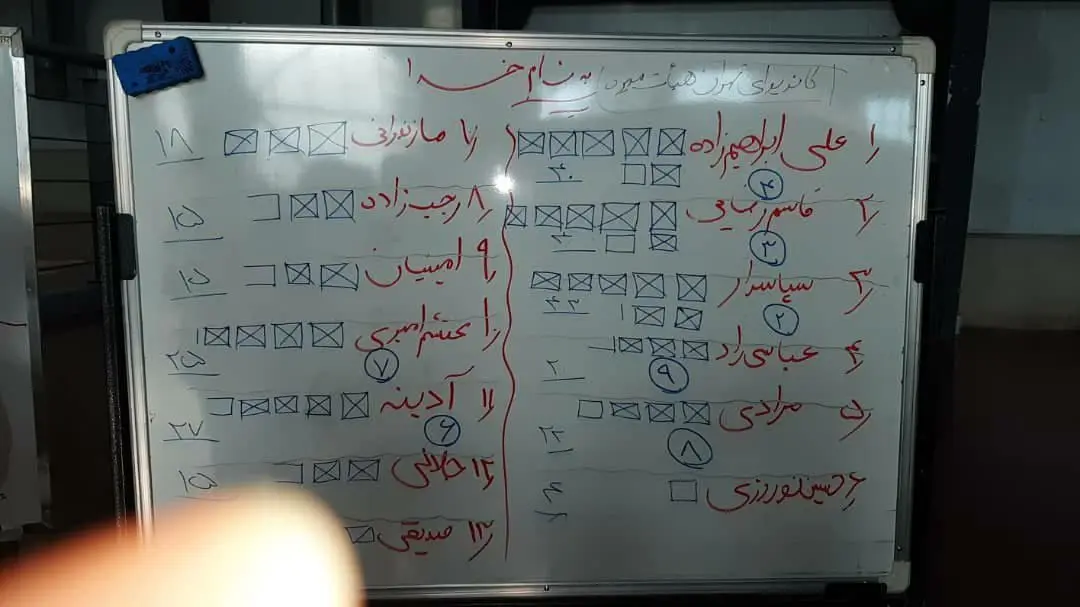 به نام خدا
کاندیدای هیئت
۱ علی ابراهیم‌زاده
۴
۴۰
۲ قاسم رضایی
۳
۳ سپاسدار
۲
۴۳
۴ عباسی راد
۹
۲۰
۵ مرادی
۸
۲۳
۶ حسین نوروزی
۴
۷ مازندرانی
۱۸
۸ رجب‌زاده
۱۵
۹ امینیان
۱۵
۱۰ محتشم امیری
۷
۲۵
۱۱ آدینه
۶
۲۷
۱۲ جلالی
۱۵
۱۳ صدیقی